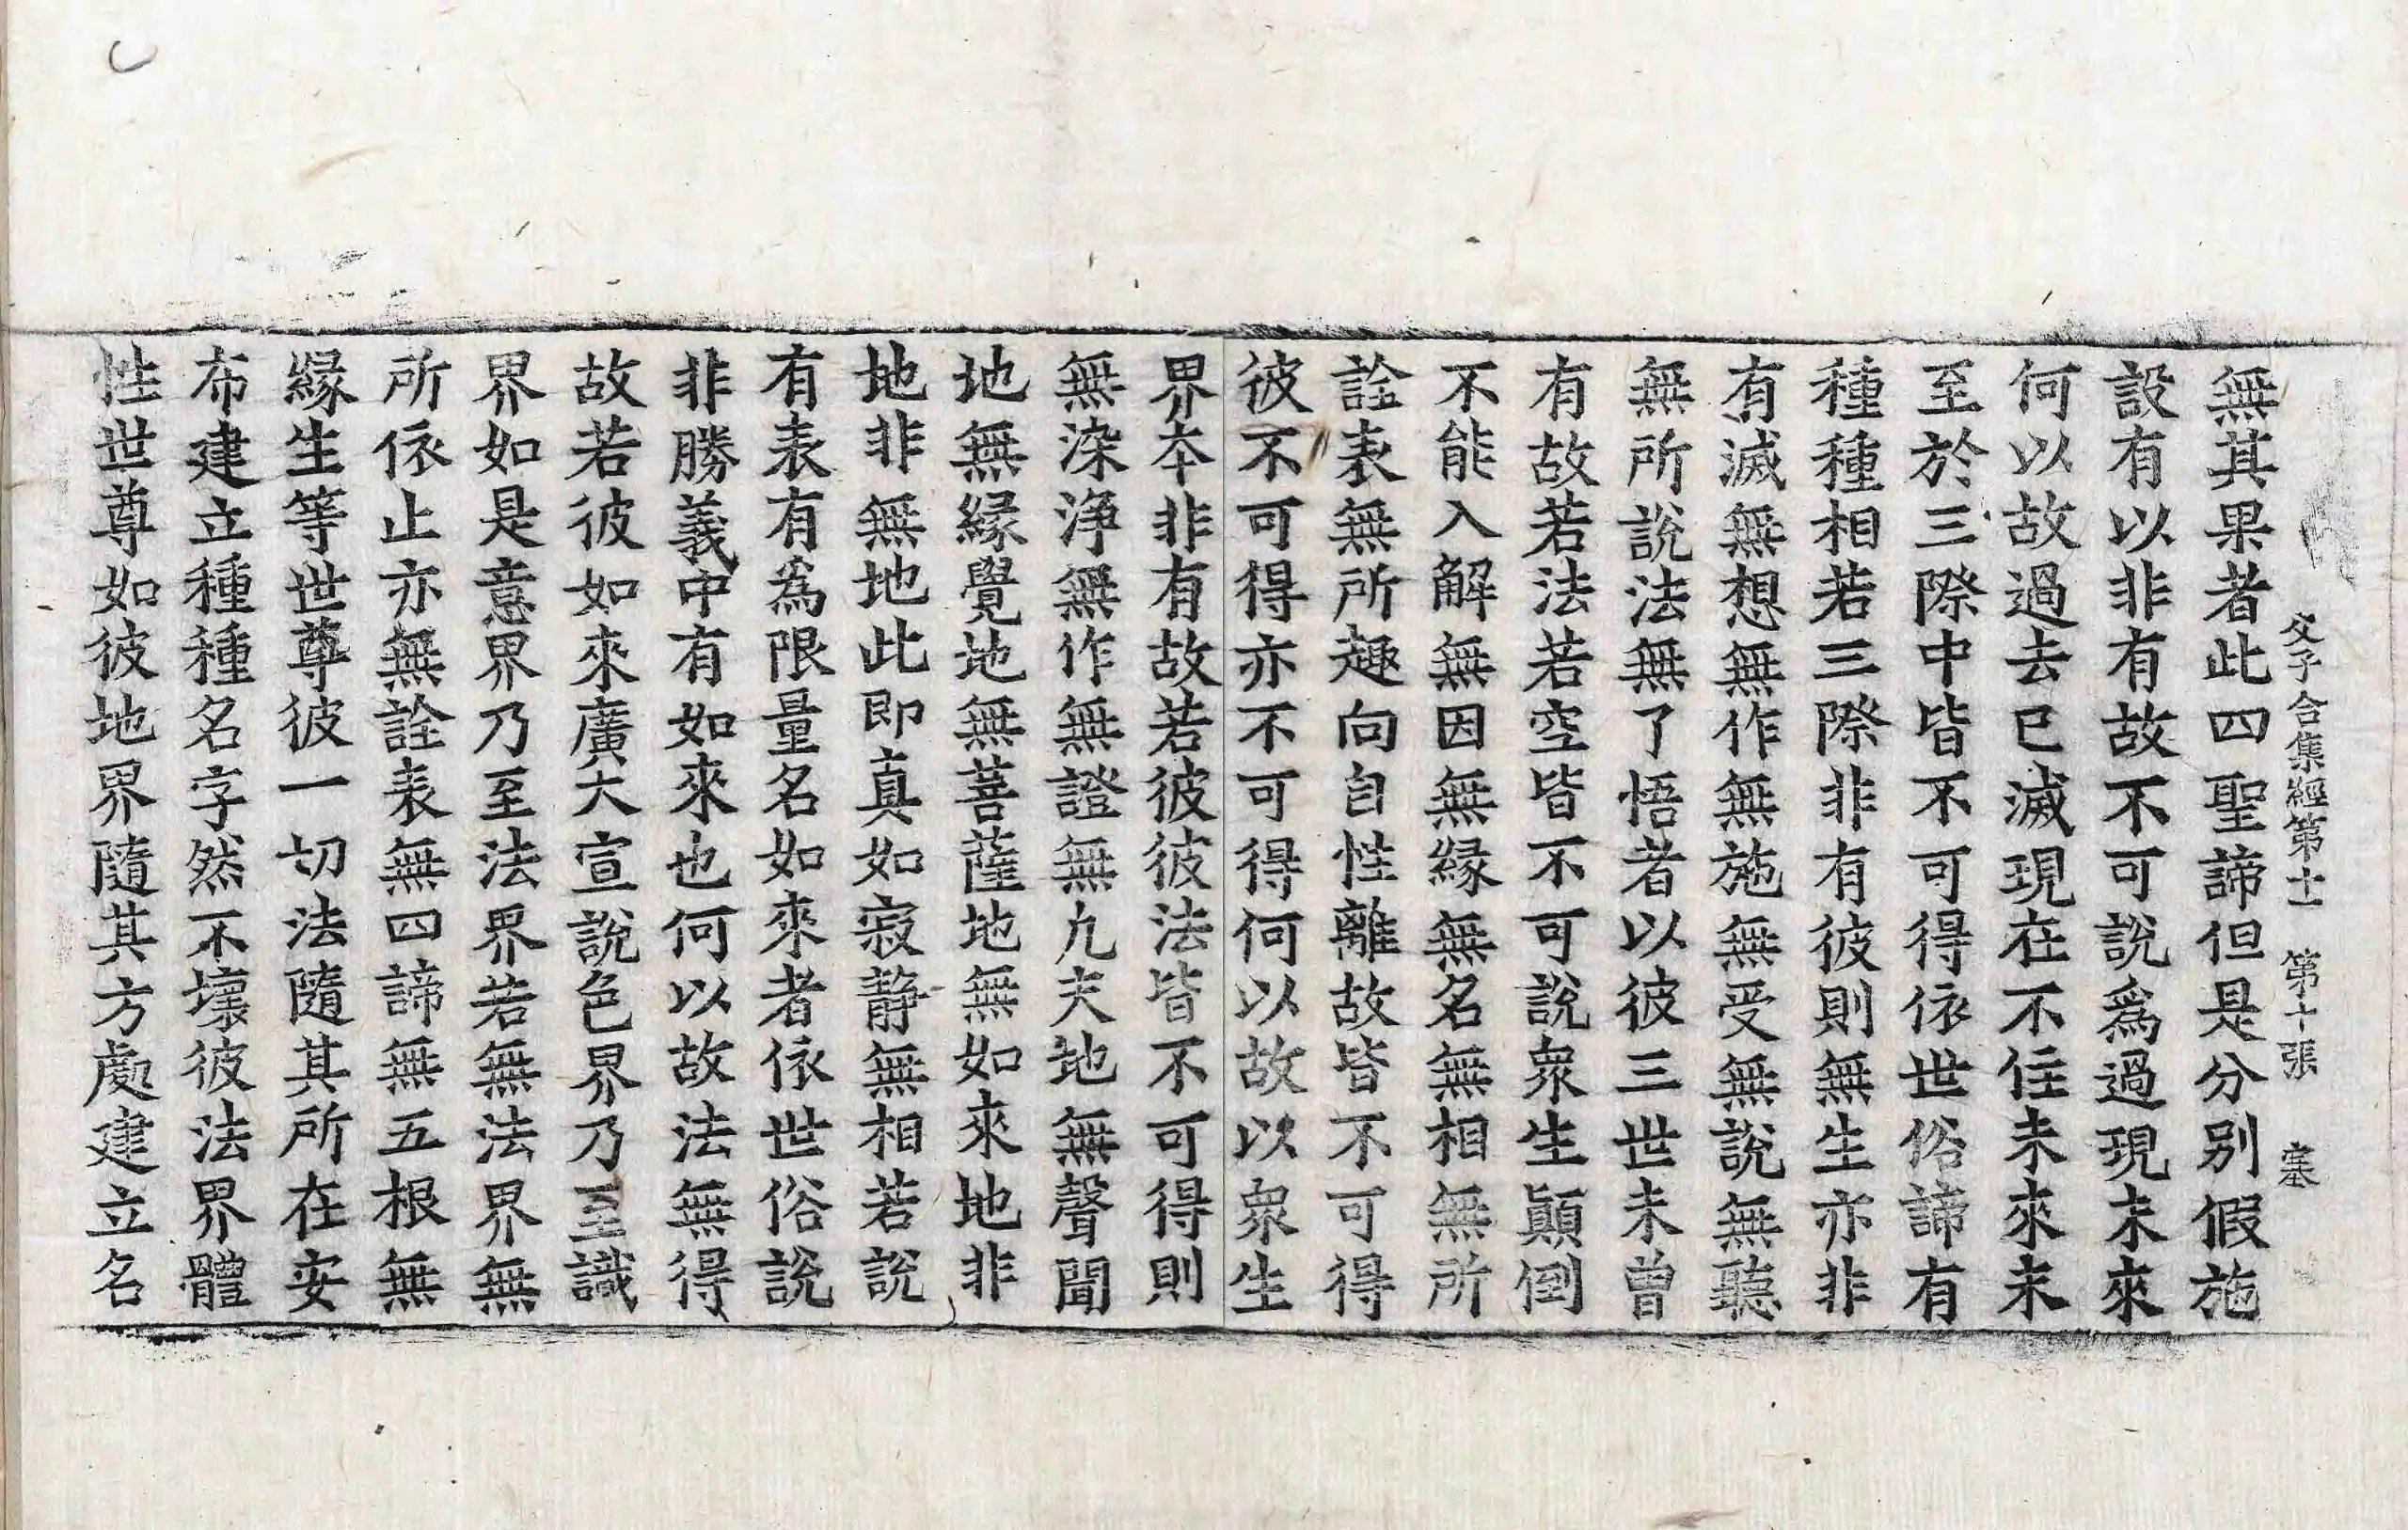 父子合集經第十一　第十張　塞
無其果者此四聖諦但是分别假施
設有以非有故不可說爲過現未來
何以故過去已滅現在不住未來未
至於三際中皆不可得依世俗諦有
種種相若三際非有彼則無生亦非
有滅無想無作無施無受無說無聽
無所說法無了悟者以彼三世未曾
有故若法若空皆不可說衆生顚倒
不能入解無因無縁無名無相無所
詮表無所趣向自性離故皆不可得
彼不可得亦不可得何以故以衆生
界本非有故若彼彼法皆不可得則
無染浄無作無證無凢夫地無聲聞
地無縁覺地無菩薩地無如來地非
地非無地此即真如寂静無相若說
有表有為限量名如來者依世俗說
非勝義中有如來也何以故法無得
故若彼如來廣大宣說色界乃至識
界如是意界乃至法界若無法界無
所依止亦無詮表無四諦無五根無
縁生等世尊彼一切法隨其所在安
布建立種種名字然不壞彼法界體
性世尊如彼地界隨其方處建立名